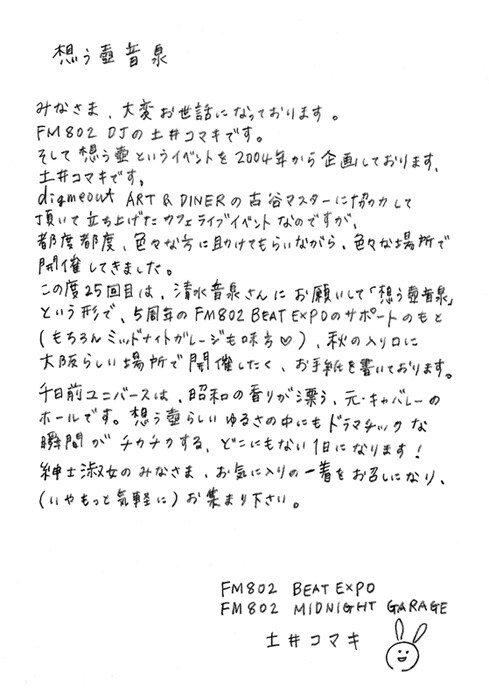 想う壷音泉
みなさま、大変お世話になっております。
FM802 DJの土井コマキです。
そして想う壷というイベントを2004年から企画しております、
土井コマキです。
digmeout ART & DINERの古谷マスターに協力して
頂いて立ち上げたカフェライブイベントなのですが、
都度都度、色々な方に助けてもらいながら、色々な場所で
開催してきました。
この度25回目は、清水音泉さんにお願いして「想う壷音泉」
という形で、5周年のFM802 BEAT EXPOのサポートのもと
(もちろんミッドナイトガレージも味方♡)、秋の入り口に
大阪らしい場所で開催したく、お手紙を書いております。
千日前ユニバースは、昭和の香りが漂う、元・キャバレーの
ホールです。想う壷らしいゆるさの中にもドラマチックな
瞬間がチカチクする、どこにもない1日になります!
紳士淑女のみなさま、お気に入りの一着をお召しになり、
(いやもっと気軽に)お集まり下さい。
FM802 BEAT EXPO
FM802 MIDNIGHT GARAGE
土井コマキ